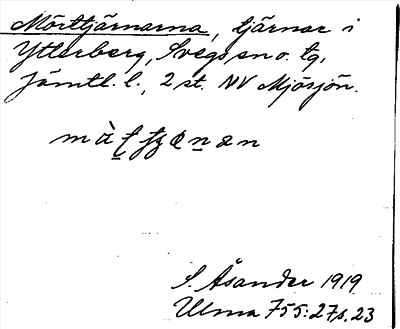 Mörttjärnarna, tjärnar i
Ytterberg, Svegs sn o. tg,
Jämtl. l., 2 st. NV Mjösjön.
S. Åsander 1919
Ulma 755:27 s. 23